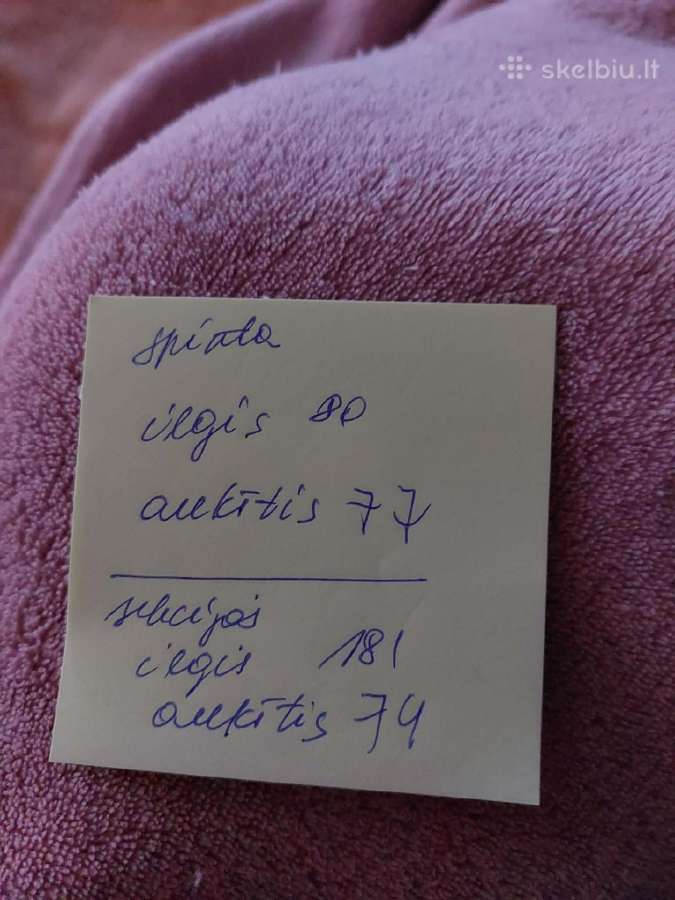 skelbiu.lt
spinta
ilgis 80
aukštis 77
sekcijos
ilgis 181
aukštis 74